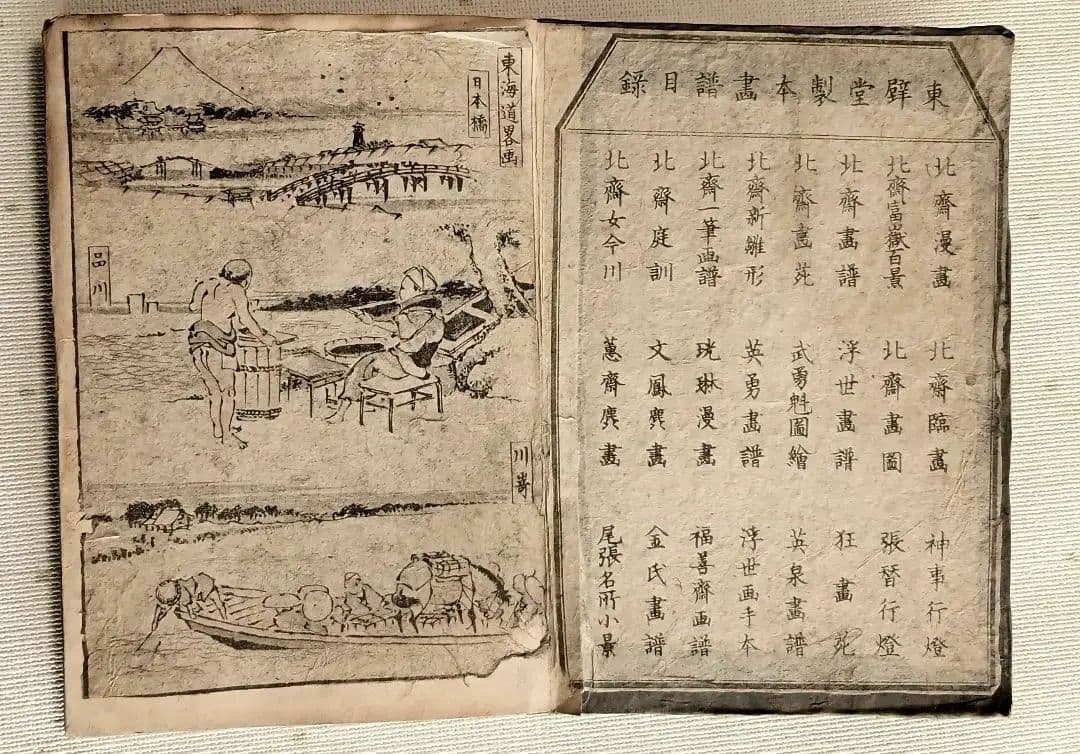 東壁堂製本畫譜目録
北齋漫畫
北齋臨畫
神事行燈
北齋富嶽百景
北齋畫圖
張替行燈
北齋畫譜
浮世畫譜
狂畫苑
北齋畫苑
武勇魁圖繪
英泉畫譜
北齋新雛形
英勇畫譜
浮世画手本
北齋一筆画譜
光琳漫畫
福善齋画譜
北齋庭訓
文鳳麁畫
金氏畫譜
北齋女今川
蕙齋麁畫
尾張名所小景
東海道畧画
日本橋
品川
川崎